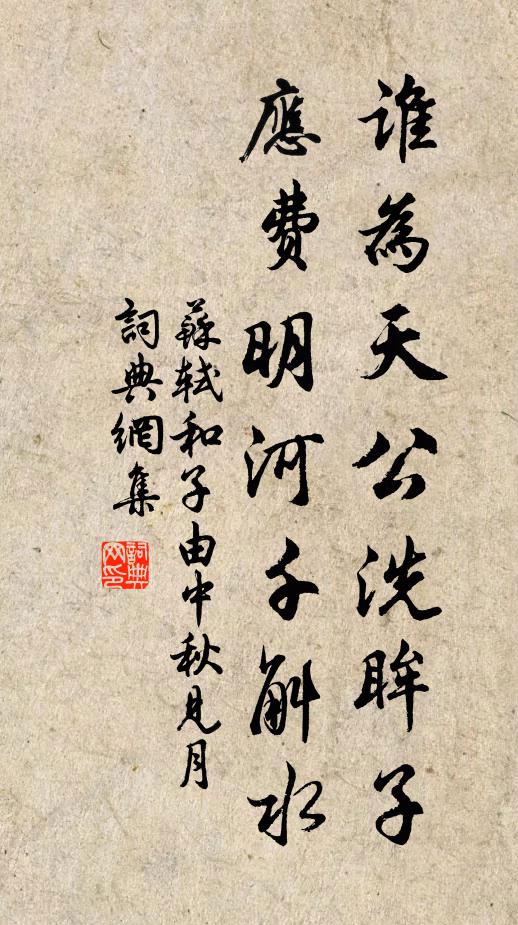 誰為天公洗眸子
應費明河千斛水
蘇軾和子由中秋見月
詞典網集
詞典網印